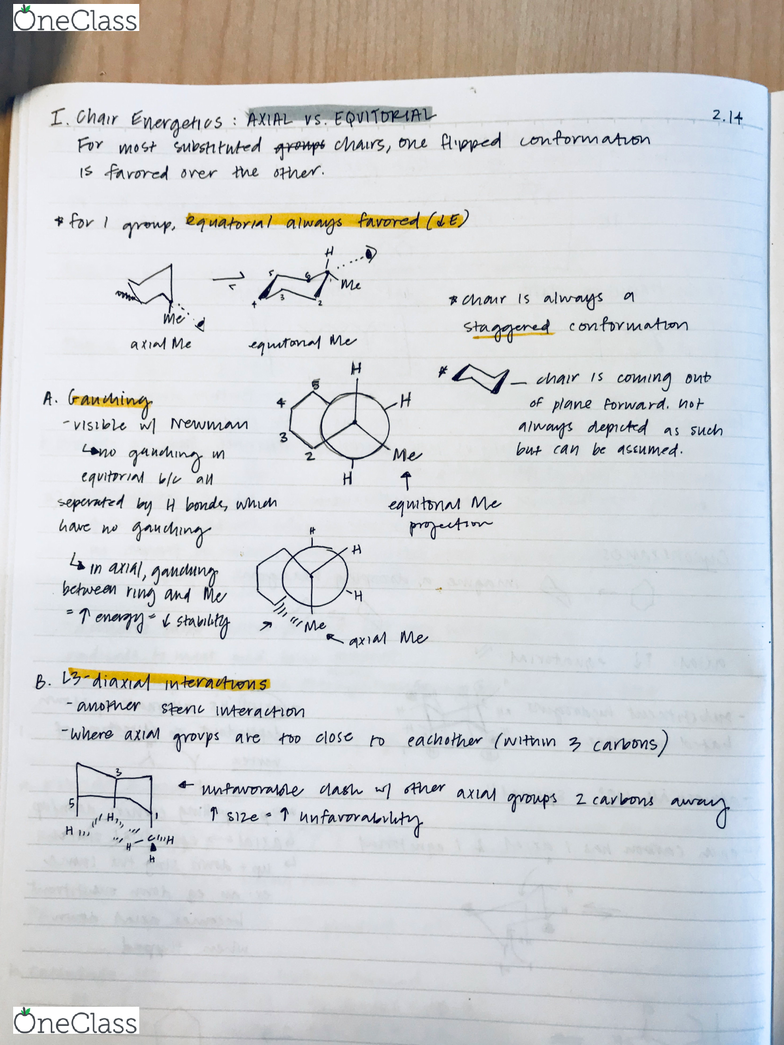 OneClass
I. Chair Energetics: AXIAL VS. EQUITORIAL
2.14
For most substituted groups chairs, one flipped conformation
is favored over the other.
* for 1 group, equatorial always favored (↓E)
H
5
6
1
Me
4
3
2
Me
axial Me
equitorial Me
* chair is always a
staggered conformation
* — chair is coming out
of plane forward. not
always depicted as such
but can be assumed.
A. Gauching
- visible w/ Newman
↳ no gauching in
equitorial b/c all
seperated by H bonds, which
have no gauching
H
5
4
H
3
2
Me
H
↑
equitorial Me
projection
↳ in axial, gauching
between ring and Me
= ↑ energy = ↓ stability
H
H
H
Me
← axial Me
B. 1,3-diaxial interactions
- another steric interaction
- where axial groups are too close to eachother (within 3 carbons)
3
5
1
H
H
H
C
H
H
← unfavorable clash w/ other axial groups 2 carbons away
↑ size = ↑ unfavorability
OneClass